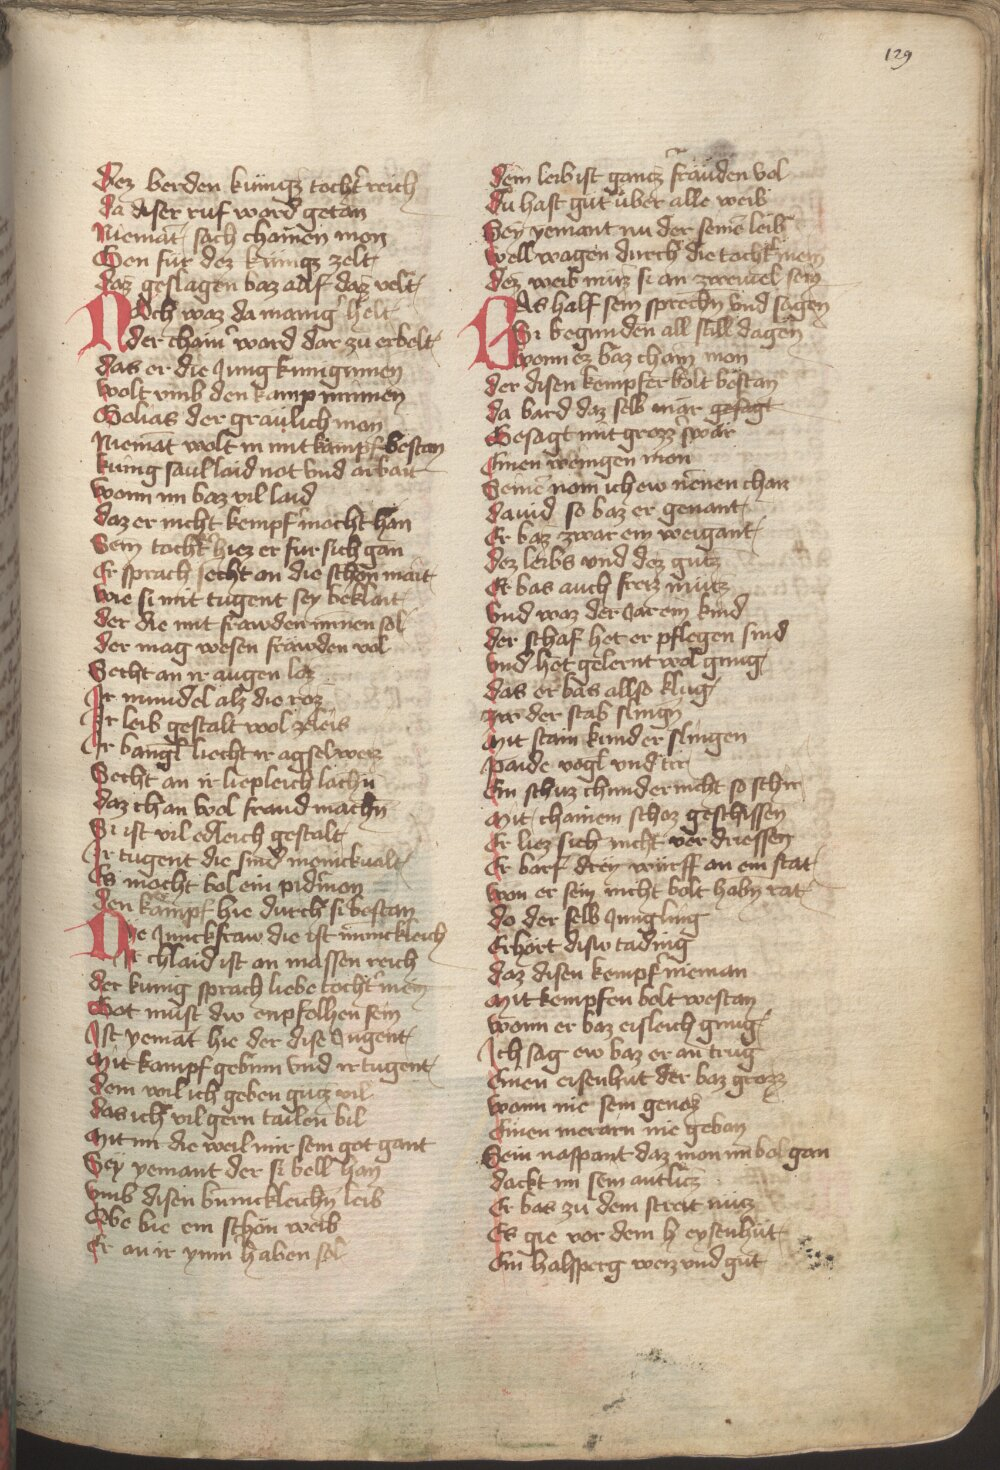 129
Dez berden kunigz tocht' reich
Da diser ruf ward getan
Niemāt sach chainen mon
Gen fur dez kunigz zelt
Daz geslagen baz auf daz velt
Noch waz da manig helt
Der chain' ward dar zu erbelt
Das er die Jung kuniginnen
Wolt vmb den kamp minnen
Golias der graulich mon
Niemāt wolt in mit kampf bestan
Kunig saul laid not vnd arbait
Wann im baz vil laid
Daz er nicht kempf' mocht han
Sein tocht' hiez er fur sich gan
Er sprach secht an die schon mait
Wie si mit tugent sey beklait
Der die mit frawden minnen sol
Der mag wesen frawden vol
Secht an ir augen loz
Ir mundel alz die roz
Ir leib gestalt wol ze leis
Ir bangl liecht ir agsel weiz
Secht an ir liepleich lachn
Daz chan wol fraud machn
Si ist vil edleich gestalt
Ir tugent die sind manickualt
Es mocht bol ein pid'mon
Den kampf hie durch si bestan
Die Junckfraw die ist minickleich
Ir chlaid ist an massen reich
Der kunig sprach liebe tocht' mein
Got must dw enpfolhen sein
Ist yemāt hie der dise Jugent
Mit kampf gebinn vnd ir tugent
Dem wil ich geben gutz vil
Das ich vil gern tailen bil
Mit im die weil mir sein got gant
Sey yemant der si bell han
Vmb disen bunickleichn leib
Obe bie ein schon weib
Er an ir ymm haben sol
Dein leib ist gancz frauden vol
Du hast gut uber alle weib
Sey yemant nu der seinē leib
Well wagen durch die tocht' mein
Dez weib muz si an zweiuel sein
Was half sein sprechn vnd sagen
Si begunden all still dagen
Wonn ez baz chain mon
Der disen kempfer bolt bestan
Da bard daz selb mar gesagt
Gesagt mit grozz swar
Einen wenigen mon
Seinē nom ich ew nenen chan
Dauid so baz er genant
Er baz zwar ein weigant
Dez leibs vnd dez gutz
Er bas auch freiz mutz
Vnd waz der Jar ein kind
Der schaf het er pflegen sind
Vnd het gelernt wol gnug
Das er bas allso klug
Mit der stab slingn
Mit stain kund er slingen
Paide vogl vnd tir
Ein schuz chund er nicht so schir
Mit chainem schoz geschissen
Er liez sich nicht ver driessen
Er barf drey wurff an ein stat
Won er sein nicht bolt habn rat
Do der selb Jungling
Erhort disw tading
Daz disen kempf' nieman
Mit kempfen bolt westan
Wonn er baz eisleich gnug
Ich sag ew baz er an trug
Einen eisenhut der baz grozz
Wann nie sein genoz
Einen merarn nie geban
Sein naspant daz mon im bol gan
Dackt im sein antlicz
Er bas zu dem streit nucz
Es gie vor dem h eysenhut
Ein halsperg weiz vnd gut